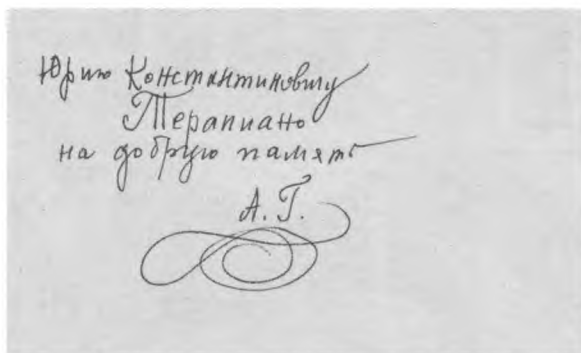 Юрию Константиновичу
Терапиано
на добрую память
А. Г.